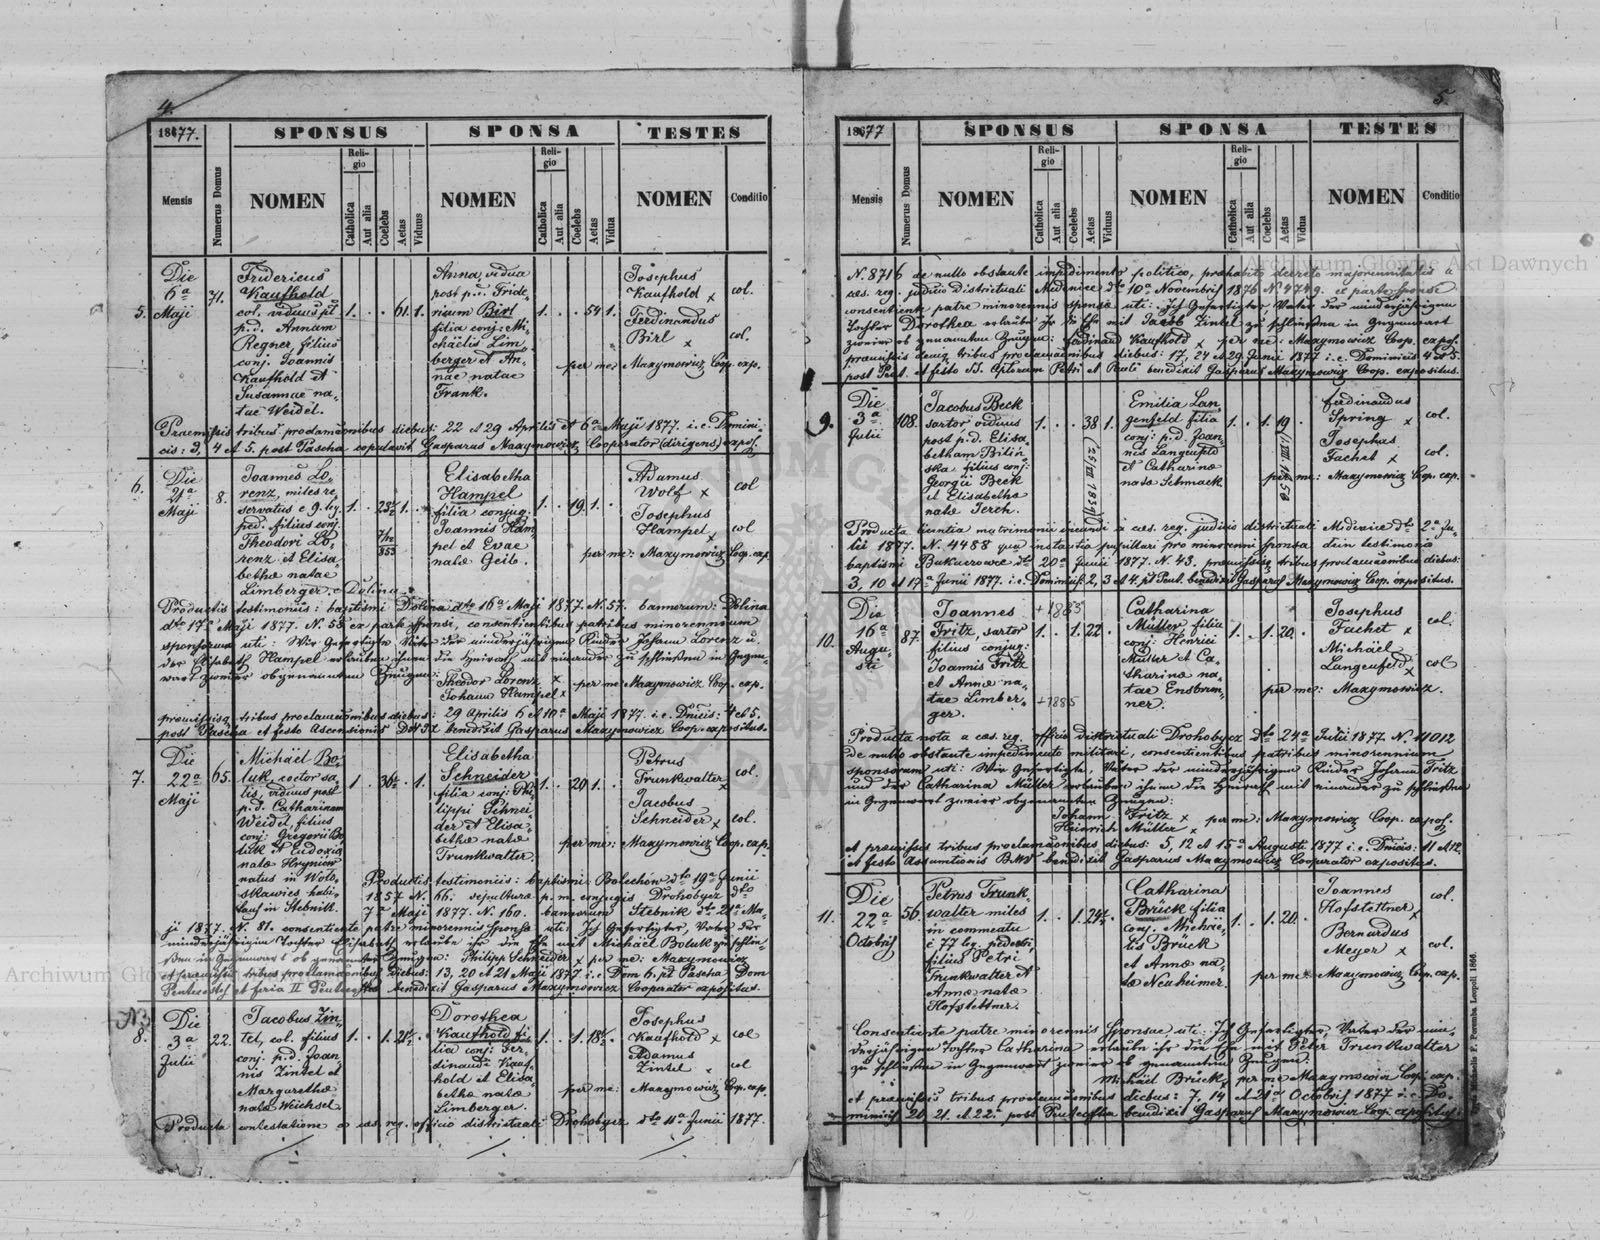 4.
1877.
SPONSUS
SPONSA
TESTES
Mensis
Numerus Domus
NOMEN
Religio
Catholica
Aut alia
Coelebs
Aetas
Viduus
NOMEN
Religio
Catholica
Aut alia
Coelebs
Aetas
Vidua
NOMEN
Conditio
5.
Die
6a
Maji
71.
Fridericus
Kaufhold
col. viduus pt
p.d. Annam
Regner, filius
conj. Joannis
Kaufhold et
Susannae na-
tae Weidel.
1. . . 61. 1.
Anna, vidua
post p.d. Fride-
ricum Birl
filia conj: Mi-
chäelis Lim-
berger et An-
nae natae
Frank.
1. . . 54 1.
Josephus
Kaufhold x
Ferdinandus
Birl x
col.
col.
per me: Maxymowicz Coop. exp.
Praemissis tribus proclamaonibus diebus: 22 et 29 Aprilis et 6a Maji 1877. i.e. Domini-
cis: 3, 4 et 5. post Pascha copulavit Gasparus Maxymowicz, Cooperator (dirigens) expos.
6.
Die
21a
Maji
8.
Joannes Lo-
renz, miles re-
servatus c 9. leg.
ped. filius conj.
Theodori Lo-
renz et Elisa-
bethae natae
Limberger. e Dolina.
Elisabetha
Hampel
filia conjug.
Joannis Ham-
pel et Evae
natae Geib.
1. . . 19. 1.
Adamus
Wolf x
Josephus
Hampel x
col
col
per me: Maxymowicz Coop. exp.
Productis testimoniis: baptismi Dolina dto 16a Maji 1877. N. 57. bannorum: Dolina
dto 17a Maji 1877. N. 58 ex parte sponsi, consentientibus patribus minorennium
sponsorum uti: Wir Gefertigte Väter der minderjährigen Kinder Johann Lorenz u.
der Elisabeth Hampel erlauben ihnen die Heirath mit einander zu schließen in Gegen-
wart zweier obgenannten Zeugen:
Theodor Lorenz x
Johann Hampel x
per me Maxymowicz Coop. exp.
praemissisq tribus proclamaonibus diebus: 29 Aprilis 6 et 10a Maji 1877. i.e. Dnicis: 4 et 5.
post Pascha et festo Ascensionis benedixit Gasparus Maxymowicz Coop. expositus.
7.
Die
22a
Maji
65.
Michäel Bo-
luk coctor sa-
lis, viduus post
p.d. Catharinam
Weidel, filius
conj: Gregorii Bo-
luk et Eudoxiae
natae Hryniow
natus in Woło-
skawies habi-
tans in Stebnik.
Elisabetha
Schneider
filia conj: Phi-
lippi Schnei-
der et Elisa-
bethae natae
Trunkwalter.
1. . . 20 1. .
Petrus
Trunkwalter x
Jacobus
Schneider x
col.
col.
per me: Maxymowicz Coop. exp.
Productis testimoniis: baptismi Bolechów dto 19a Junii
1857 N. 66. sepulturae p.m. conjugis Drohobycz dto
7a Maji 1877. N. 160. bannorum Stebnik dto 21a Ma-
ji 1877. N. 81. consentiente patre minorennis sponsae uti: Ich Gefertigter, Vater der
minderjährigen Tochter Elisabeth erlaube ihr die Ehe mit Michäel Boluk zu schlie-
ßen in Gegenwart ob genannter Zeugen: Philipp Schneider x per me: Maxymowicz
et praemissis tribus proclamaonibus diebus: 13, 20 et 21 Maji 1877 i.e. Dom 6. pt Pascha Dom
Pentecostes et feria II Pentecostes benedixit Gasparus Maxymowicz Cooperator expositus.
8.
Die
3a
Julii
22.
Jacobus Zin-
tel, col. filius
conj. p.d. Joan-
nis Zintel et
Margarethae
natae Weichsel.
Dorothea
Kaufhold fi-
lia conj: Fer-
dinandi Kauf-
hold et Elisa-
bethae natae
Limberger.
Josephus
Kaufhold x
Adamus
Zintel x
col
col
per me: Maxymowicz Coop. exp.
Producta contestatione a caes. reg. officio districtuali Drohobycz dto 11a Junii 1877.
5.
1877
SPONSUS
SPONSA
TESTES
Mensis
Numerus Domus
NOMEN
Religio
Catholica
Aut alia
Coelebs
Aetas
Viduus
NOMEN
Religio
Catholica
Aut alia
Coelebs
Aetas
Vidua
NOMEN
Conditio
N. 8716 de nullo obstante impedimento politico, prohabito decreto majorennitatis a
caes. reg. judicio districtuali Medenice dto 10a Novembris 1876 N. 4749. ex parte sponsi
consentiente patre minorennis sponsae uti: Ich Gefertigter, Vater der minderjährigen
Tochter Dorothea erlaube ihr die Ehe mit Jacob Zintel zu schließen in Gegenwart
zweier ob genannten Zeugen: Ferdinand Kaufhold x per me: Maxymowicz Coop. expos.
praemissis denig tribus proclamaonibus diebus: 17, 24 et 29 Junii 1877 i.e. Dominicis 4 et 5.
post Pent. et festo SS. Aptorum Petri et Pauli benedixit Gasparus Maxymowicz Coop. expositus.
9.
Die
3a
Julii
108.
Jacobus Beck
sartor viduus
post p.d. Elisa-
betham Biliń-
ska filius conj:
Georgii Beck
et Elisabethae
natae Ferch.
1. . . 38 1.
Emilia Lan-
genfeld filia
conj: p.d. Joan-
nis Langenfeld
et Catharinae
natae Schmack.
1. . 1. 19.
Ferdinandus
Spring x
Josephus
Fachet x
col.
col.
per me: Maxymowicz Coop. exp.
Producta licentia matrimonii ineundi a caes. reg. judicio districtuali Medenice dto 2a Ju-
lii 1877. N. 4488 qua instantia pupillari pro minorenni sponsa dein testimonio
baptismi Bukaczowce dto 20a Junii 1877. N. 43. praemissisq tribus proclamaonibus diebus:
3, 10 et 17a Junii 1877. i.e. Dominicis 2, 3 et 4. pt Pent. benedixit Gasparus Maxymowicz Coop. expositus.
10.
Die
16a
Augu-
sti
87.
Joannes
Fritz, sartor
filius conjug:
Joannis Fritz
et Annae na-
tae Limber-
ger.
+1883
+1885
1. . 1. 22. .
Catharina
Müller filia
conj: Henrici
Müller et Ca-
tharinae na-
tae Enstren-
ner.
1. . 1. 20. .
Josephus
Fachet x
Michäel
Langenfeld x
col.
col
per me: Maxymowicz.
Producta nota a caes. reg. officio districtuali Drohobycz dto 24a Julii 1877. N. 11012
de nullo obstante impedimento militari, consentientibus patribus minorennium
sponsorum uti: Wir Gefertigte, Väter der minderjährigen Kinder Johann Fritz
und der Catharina Müller erlauben ihnen die Heirath mit einander zu schließen
in Gegenwart zweier obgenannten Zeugen:
Johann Fritz x
Heinrich Müller x
per me: Maxymowicz Coop. expos.
et praemissis tribus proclamaonibus diebus: 5, 12 et 15a Augusti 1877 i.e. Dnicis: 11 et 12.
et festo Assumtionis BMV benedixit Gasparus Maxymowicz Cooperator expositus.
11.
Die
22a
Octobris
56.
Petrus Trunk-
walter miles
in commeatu
c 77 leg. pedestri,
filius Petri
Trunkwalter et
Annae natae
Hofstettner.
Catharina
Brück filia
conj. Michäe-
lis Brück
et Annae na-
tae Neuheimer.
1. . 1. 20. .
Joannes
Hofstettner x
Bernardus
Meyer x
col.
col.
per me Maxymowicz Coop. exp.
Consentiente patre minorennis sponsae uti: Ich Gefertigter, Vater der min-
derjährigen Tochter Catharina erlaube ihr die Ehe mit Peter Trunkwalter
zu schließen in Gegenwart zweier ob genannten Zeugen:
Michäel Brück, per me Maxymowicz Coop. exp.
et praemissis tribus proclamaonibus diebus: 7, 14 et 21a Octobris 1877 i.e. Do-
minicis 20 21. et 22a post Pentecostea benedixit Gasparus Maxymowicz Coop. expositus.
F. Poremba. Leopoli 1866.
Archiwum Główne Akt Dawnych
Archiwum Główne